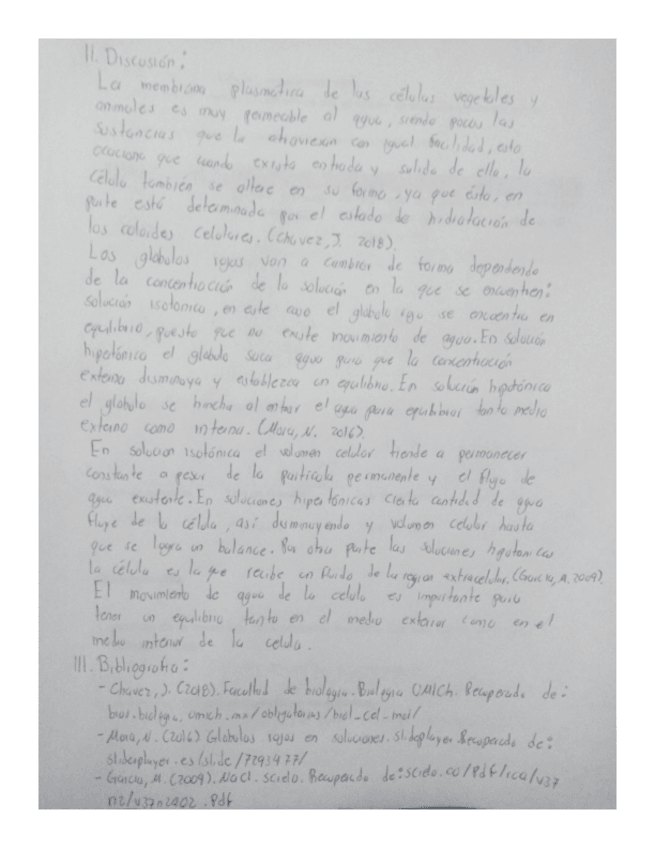 II. Discusión:
La membrana plasmatica de las células vegetales y
animales es muy permeable al agua, siendo pocas las
sustancias que la atraviesan con igual facilidad, esto
ocaciona que cuando exista entrada y salida de ella, la
célula también se altere en su forma, ya que ésta, en
parte está determinada por el estado de hidratación de
los coloides celulares. (Chavez, J. 2018).
Los glóbulos rojos van a cambiar de forma dependendo
de la concentración de la solución en la que se encuentren:
solución isotónica, en este caso el glóbulo rojo se encuentra en
equilibrio, puesto que no existe movimiento de agua. En solución
hipotónica el glóbulo saca agua para que la concentración
externa disminuya y establezca un equilibrio. En solución hipotónica
el glóbulo se hincha al entrar el agua para equilibrar tanto medio
externo como interno. (Mora, N. 2016).
En solución isotónica el volumen celular tiende a permanecer
constante a pesar de la particula permanente y el flujo de
agua existente. En soluciones hipertónicas cierta cantidad de agua
fluye de la célula, así disminuyendo y volumen celular hasta
que se logra un balance. Por otra parte las soluciones hipotonicas
la célula es la que recibe un fluido de la region extracelular. (Garcia, M. 2009).
El movimiento de agua de la celula es importante para
tener un equilibrio tanto en el medio exterior como en el
medio interior de la celula.
III. Bibliografia:
- Chavez, J. (2018). Facultad de biologia. Biologia UMICh. Recuperado de:
bios.biologia.umich.mx/obligatorias/biol_cel_mol/
- Mora, N. (2016) Globulos rojos en soluciones. slideplayer. Recuperado de:
slideplayer.es/slide/7293477/
- Garcia, M. (2009). NaCl. scielo. Recuperado de: scielo.co/pdf/ica/v37
n2/v37n2a02.pdf